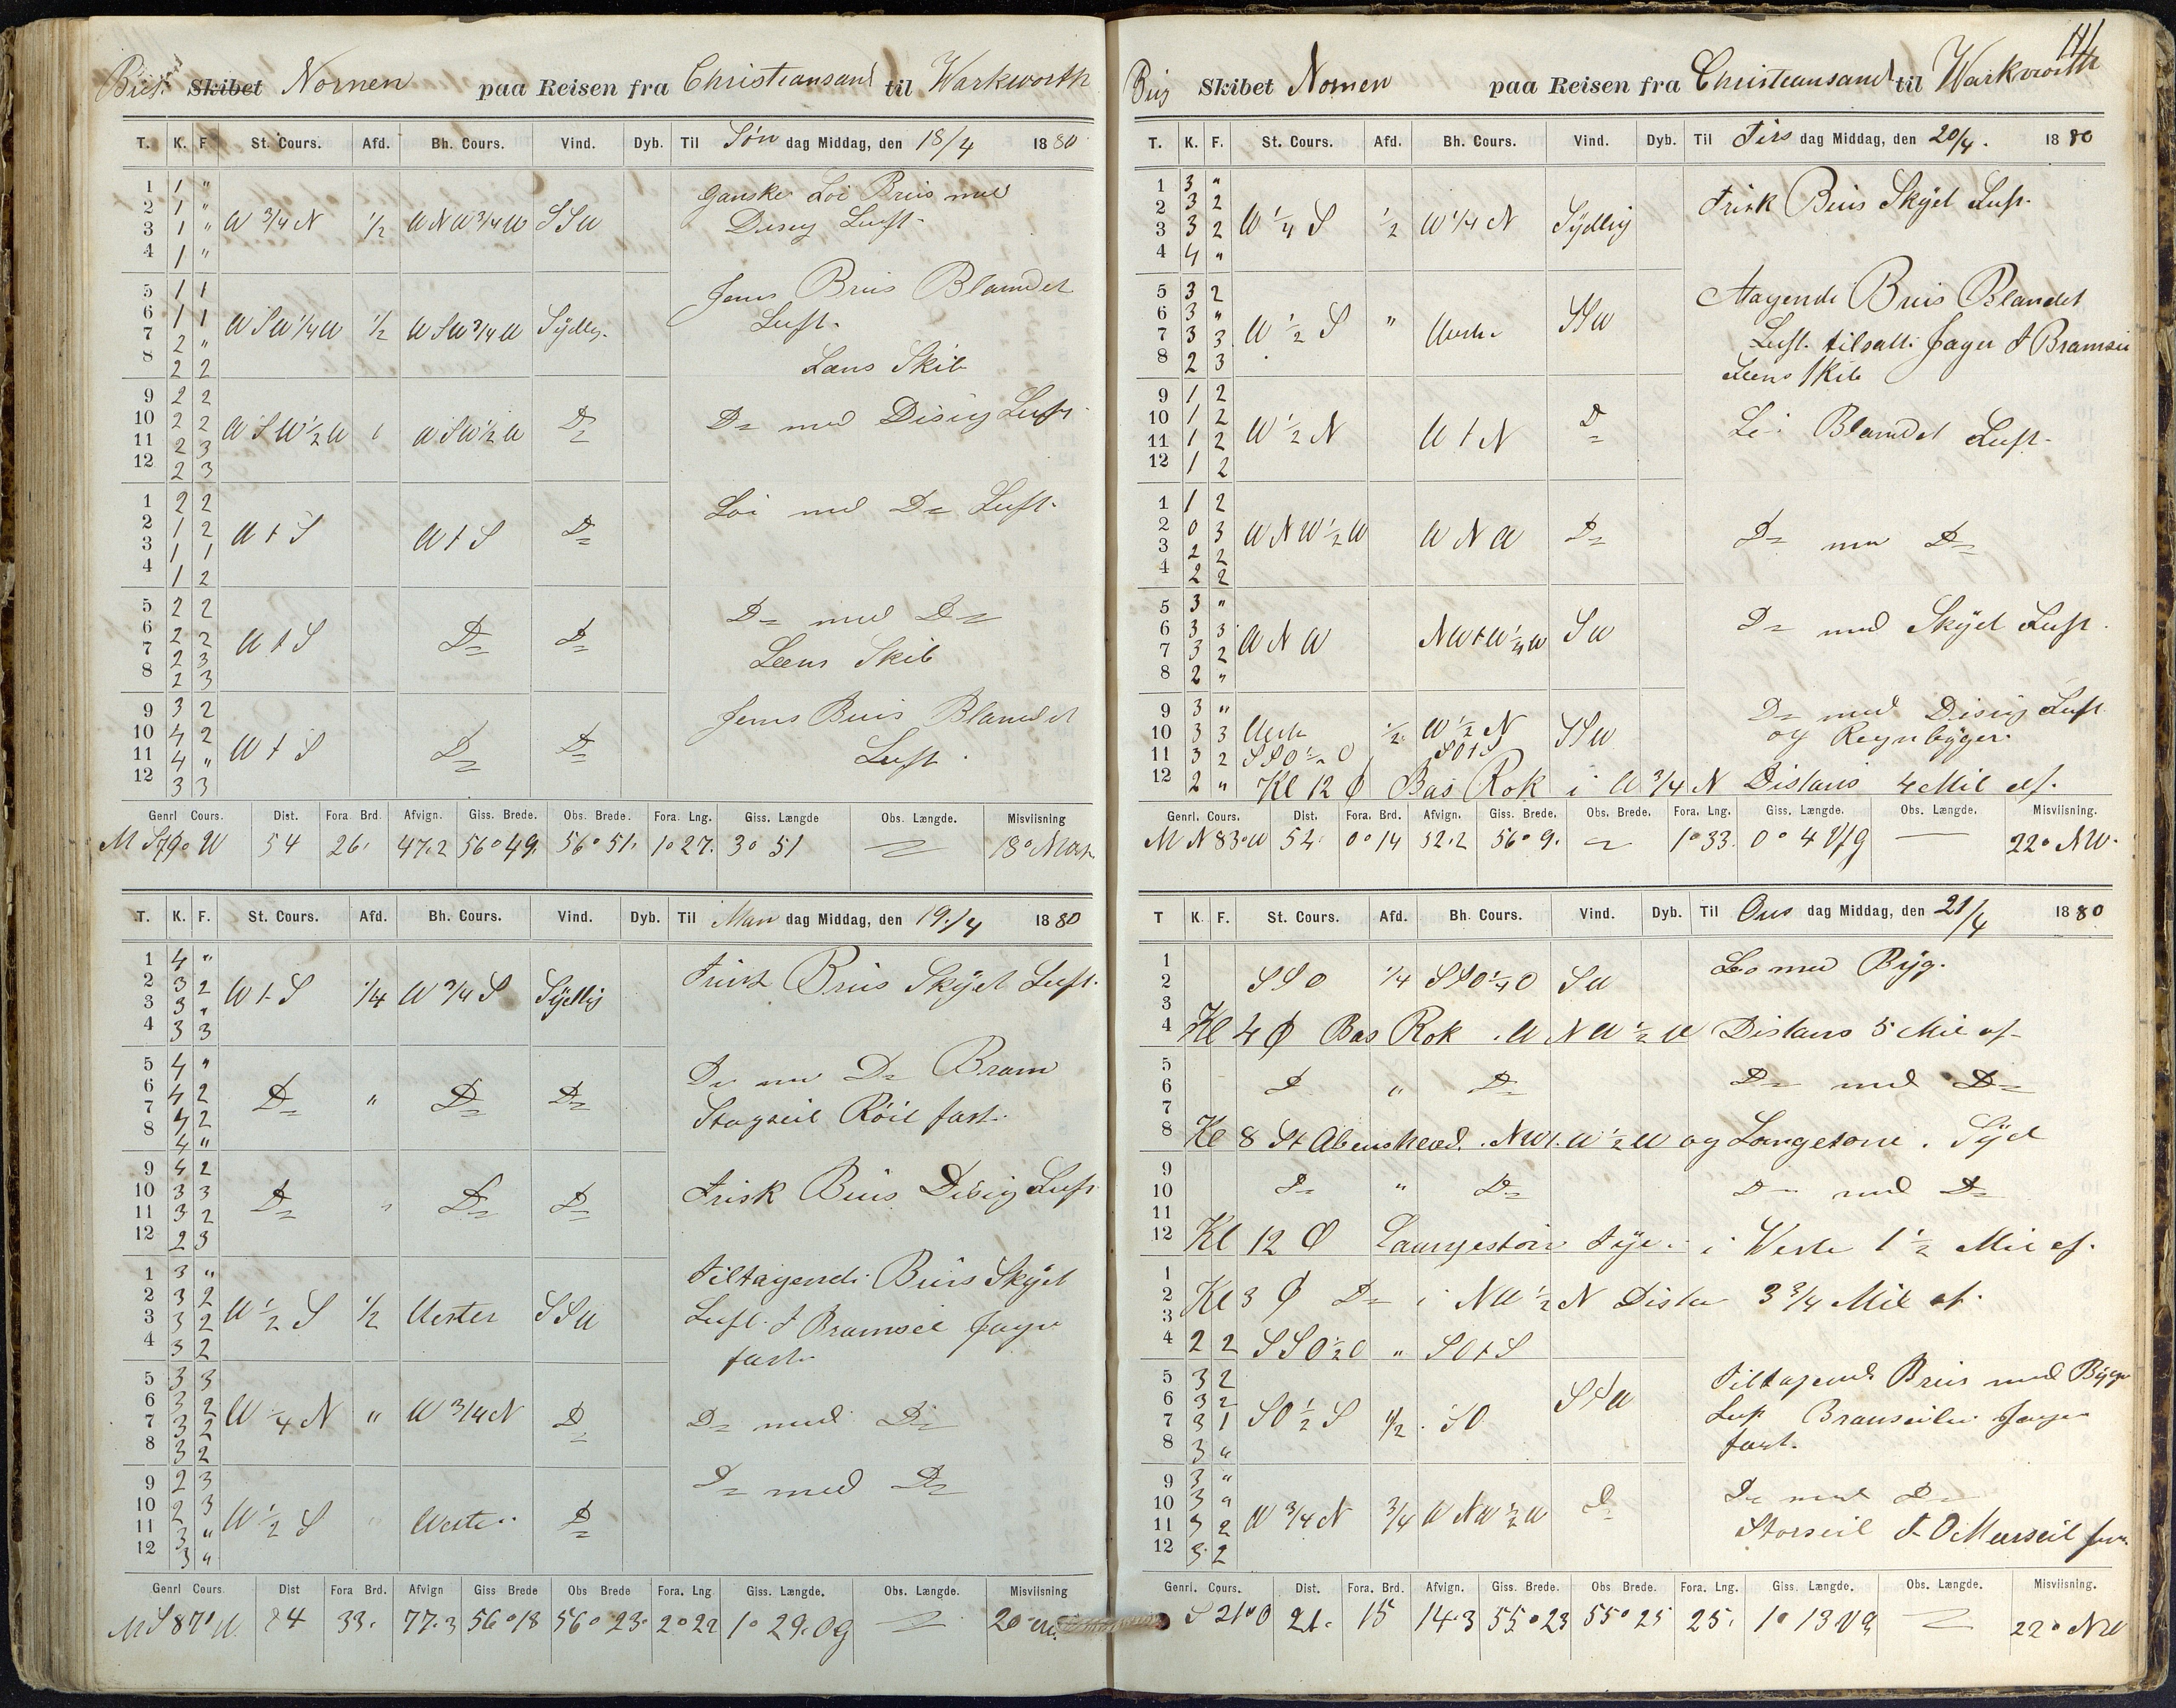 Skibet Nornen paa Reisen fra Christiansand til Warkworth
T. K. F. St. Cours. Afd. Bh. Cours. Vind. Dyb. Til Søn dag Middag, den 18/4 1880
1 1 " Ganske Løi Bris med
2 1 "
3 1 " W 3/4 N 1/2 WNW 3/4 W SSW Disig Luft
4 1 "
5 1 1 Jevn Bris Blandet
6 1 1 WSW 1/4 W 1/2 WSW 3/4 W Sÿdlig Luft.
7 2 "
8 2 2 Læns Skib
9 2 2
10 2 2 WSW 1/2 W WSW 1/2 W D= D= med Disig Luft
11 2 3
12 2 3
1 2 2 Løi med D= Luft
2 1 2 W t S W t S D=
3 1 1
4 1 2
5 2 2 D= med D=
6 2 2 W t S D= D=
7 2 3 Læns Skib
8 2 3
9 3 2 Jevn Bris Blandet
10 4 2 W t S D= D=
11 4 " Luft
12 3 3
Genrl Cours. Dist. Fora Brd. Afvign. Giss. Brede. Obs. Brede. Fora. Lng. Giss. Længde Obs. Længde. Misviisning
M S 79° W 54 26. 47.2 56° 49. 56° 51. 1° 27. 3° 51 18°
T. K. F. St. Cours. Afd. Bh. Cours. Vind. Dyb. Til Man dag Middag, den 19/4 1880
1 4 " Frisk Bris Skÿet Luft.
2 3 2 W t S 1/4 W 3/4 S Sÿdlig
3 3 "
4 3 3
5 4 " D= med D= Bram
6 4 2 D= " D= D=
7 4 2 Stagseil Röil fast.
8 4 "
9 4 2
10 3 3 D= " D= D= Frisk Bris Disig Luft
11 3 2
12 2 3
1 3 " Tiltagende Bris Skÿet
2 3 2 W 1/2 S 1/2 Vester SSW
3 3 2 Luft. F Bramseil Jager
4 3 2 fast.
5 3 3
6 3 2 W 1/4 N " W 3/4 N D= D= med D=
7 3 2
8 3 2
9 2 3 D= med D=
10 2 3 W 1/2 S " Vester D=
11 3 "
12 3 "
Genrl Cours Dist Fora Brd. Afvign Giss Brede Obs Brede Fora. Lng Giss. Længde. Obs. Længde. Misviisning
M S 87° W. 84 33. 77.3 56° 18 56° 23. 2° 22 1° 29. Og 20°
111
Brig Skibet Nornen paa Reisen fra Christiansand til Warkworth
T. K. F. St. Cours. Afd. Bh. Cours. Vind. Dyb. Til Tirs dag Middag, den 20/4. 1880
1 3 " Frisk Bris Skÿet Luft.
2 3 2
3 3 2 W 1/4 S 1/2 W 1/4 N Sÿdlig
4 4 "
5 3 2 Bris Blandet
6 3 " W 1/2 S " Vester SSW
7 3 3 Luft. tilsatte Jager F Bramseil
8 2 3 Læns Skib
9 1 2
10 1 2 W 1/2 N W t N D= Løi Blandet Luft
11 1 2
12 1 2
1 1 2
2 0 3 WNW 1/2 W WNW D= D= med D=
3 2 2
4 2 2
5 3 "
6 3 3 WNW NWtW 1/4 W SW D= med Skÿet Luft.
7 3 2
8 2 "
9 3 " D= med Disig Luft
10 3 3 Vester 1/2 W 1/2 N SSW og Regnbÿger.
11 3 2 SSO 1/2 O SOtS
12 2 " Kl 12 Ø Bas Rok i W 3/4 N Distans 4 Mil af.
Genrl. Cours. Dist. Fora. Brd. Afvign. Giss. Brede. Obs. Brede. Fora. Lng. Giss. Længde. Obs. Længde. Misviisning
M N 83° W 52. 0° 14 52.2 56° 9. 1° 33. 0° 4 Vg 22° NW.
T K. F. St. Cours. Afd. Bh. Cours. Vind. Dyb. Til Ons dag Middag, den 21/4 1880
1 med Bÿg.
2 SSO 1/4 SSO 1/4 O SW
3
4 Kl 4 Ø Bas Rok i WNW 1/2 W Distans 5 Mil af
5
6 D " D= D= med D=
7
8 Kl 8 St Abens Head. NWt. W 1/2 W og Langstone. Sÿd
9
10 D= " D= D= med D=
11
12 Kl 12 Ø Langstone Fÿr i Veste 1 1/2 Mil af.
1
2 Kl 3 Ø D= i NW 1/2 N 3 3/4 Mil af.
3
4 2 2 SSO 1/2 O " SOtS
5 3 2 Tiltagende Bris med Bÿge
6 3 2 SSW
7 3 1 SO 1/2 S 1/2 SO Luft Bramseilene Jager
8 3 " fast.
9 3 "
10 3 " D= med D=
11 3 2 W 3/4 N 3/4 WNW 1/2 W D= Storseil F O Mærseil
12 3 2
Genrl. Cours. Dist. Fora. Brd. Afvign. Giss. Brede. Obs Brede. Fora. Lng. Giss. Længde. Obs. Længde. Misviisning.
S 21° O 21. 15 14.3 55° 23 55° 25 25. 1° 13 Vg 22° NW